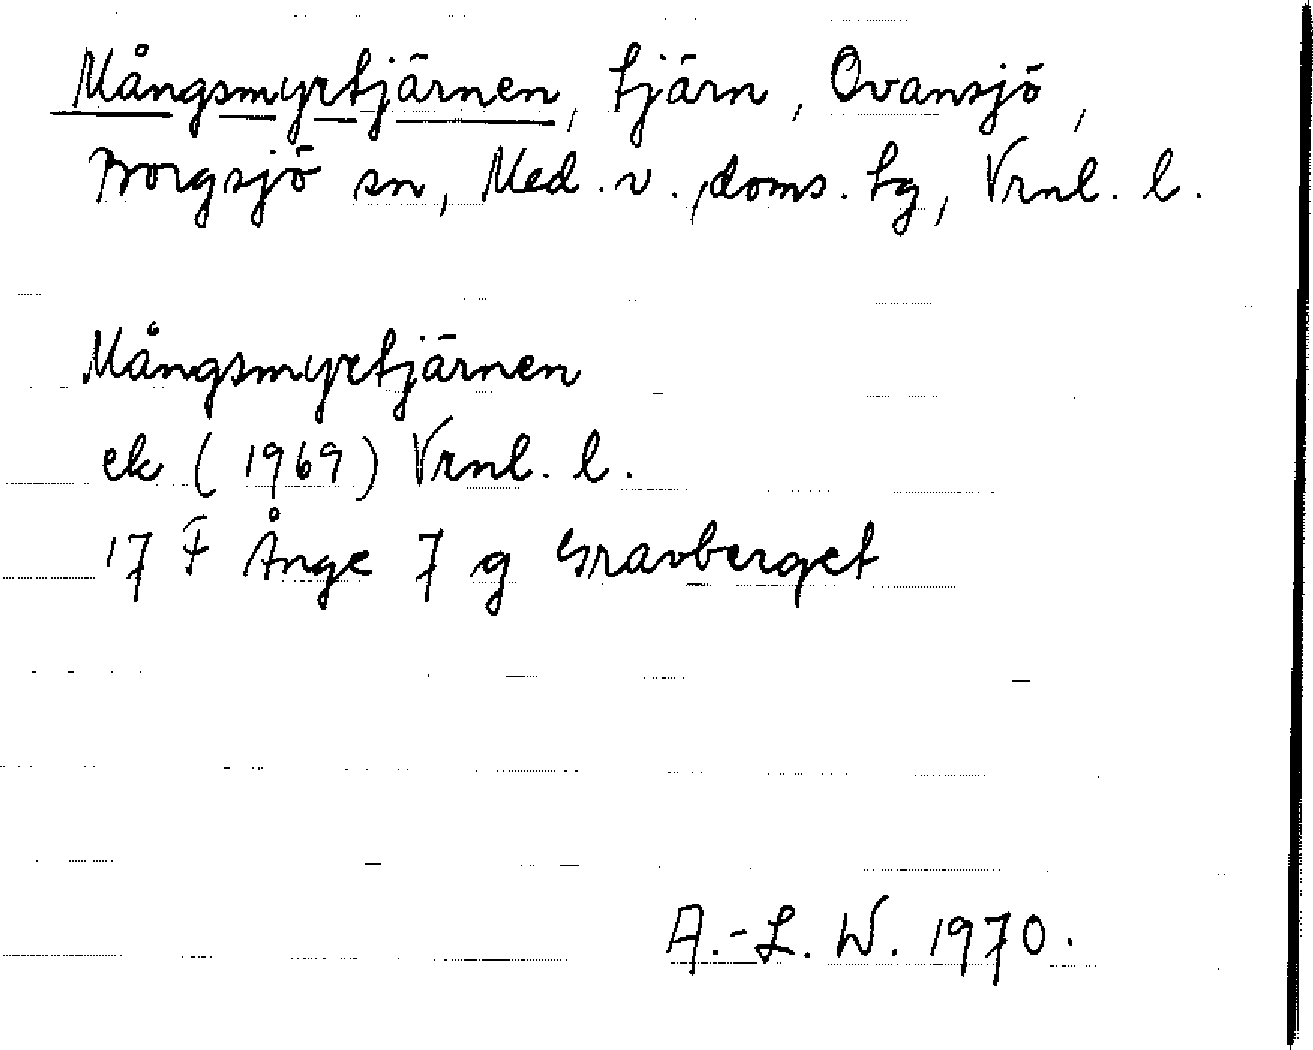 Mångsmyrtjärnen, tjärn, Ovansjö,
Borgsjö sn, Med. v., doms. tg, Vrnl. l.
Mångsmyrtjärnen
ek (1969) Vrnl. l.
17 F Ånge 7 g Gravberget
A.-L. W. 1970.